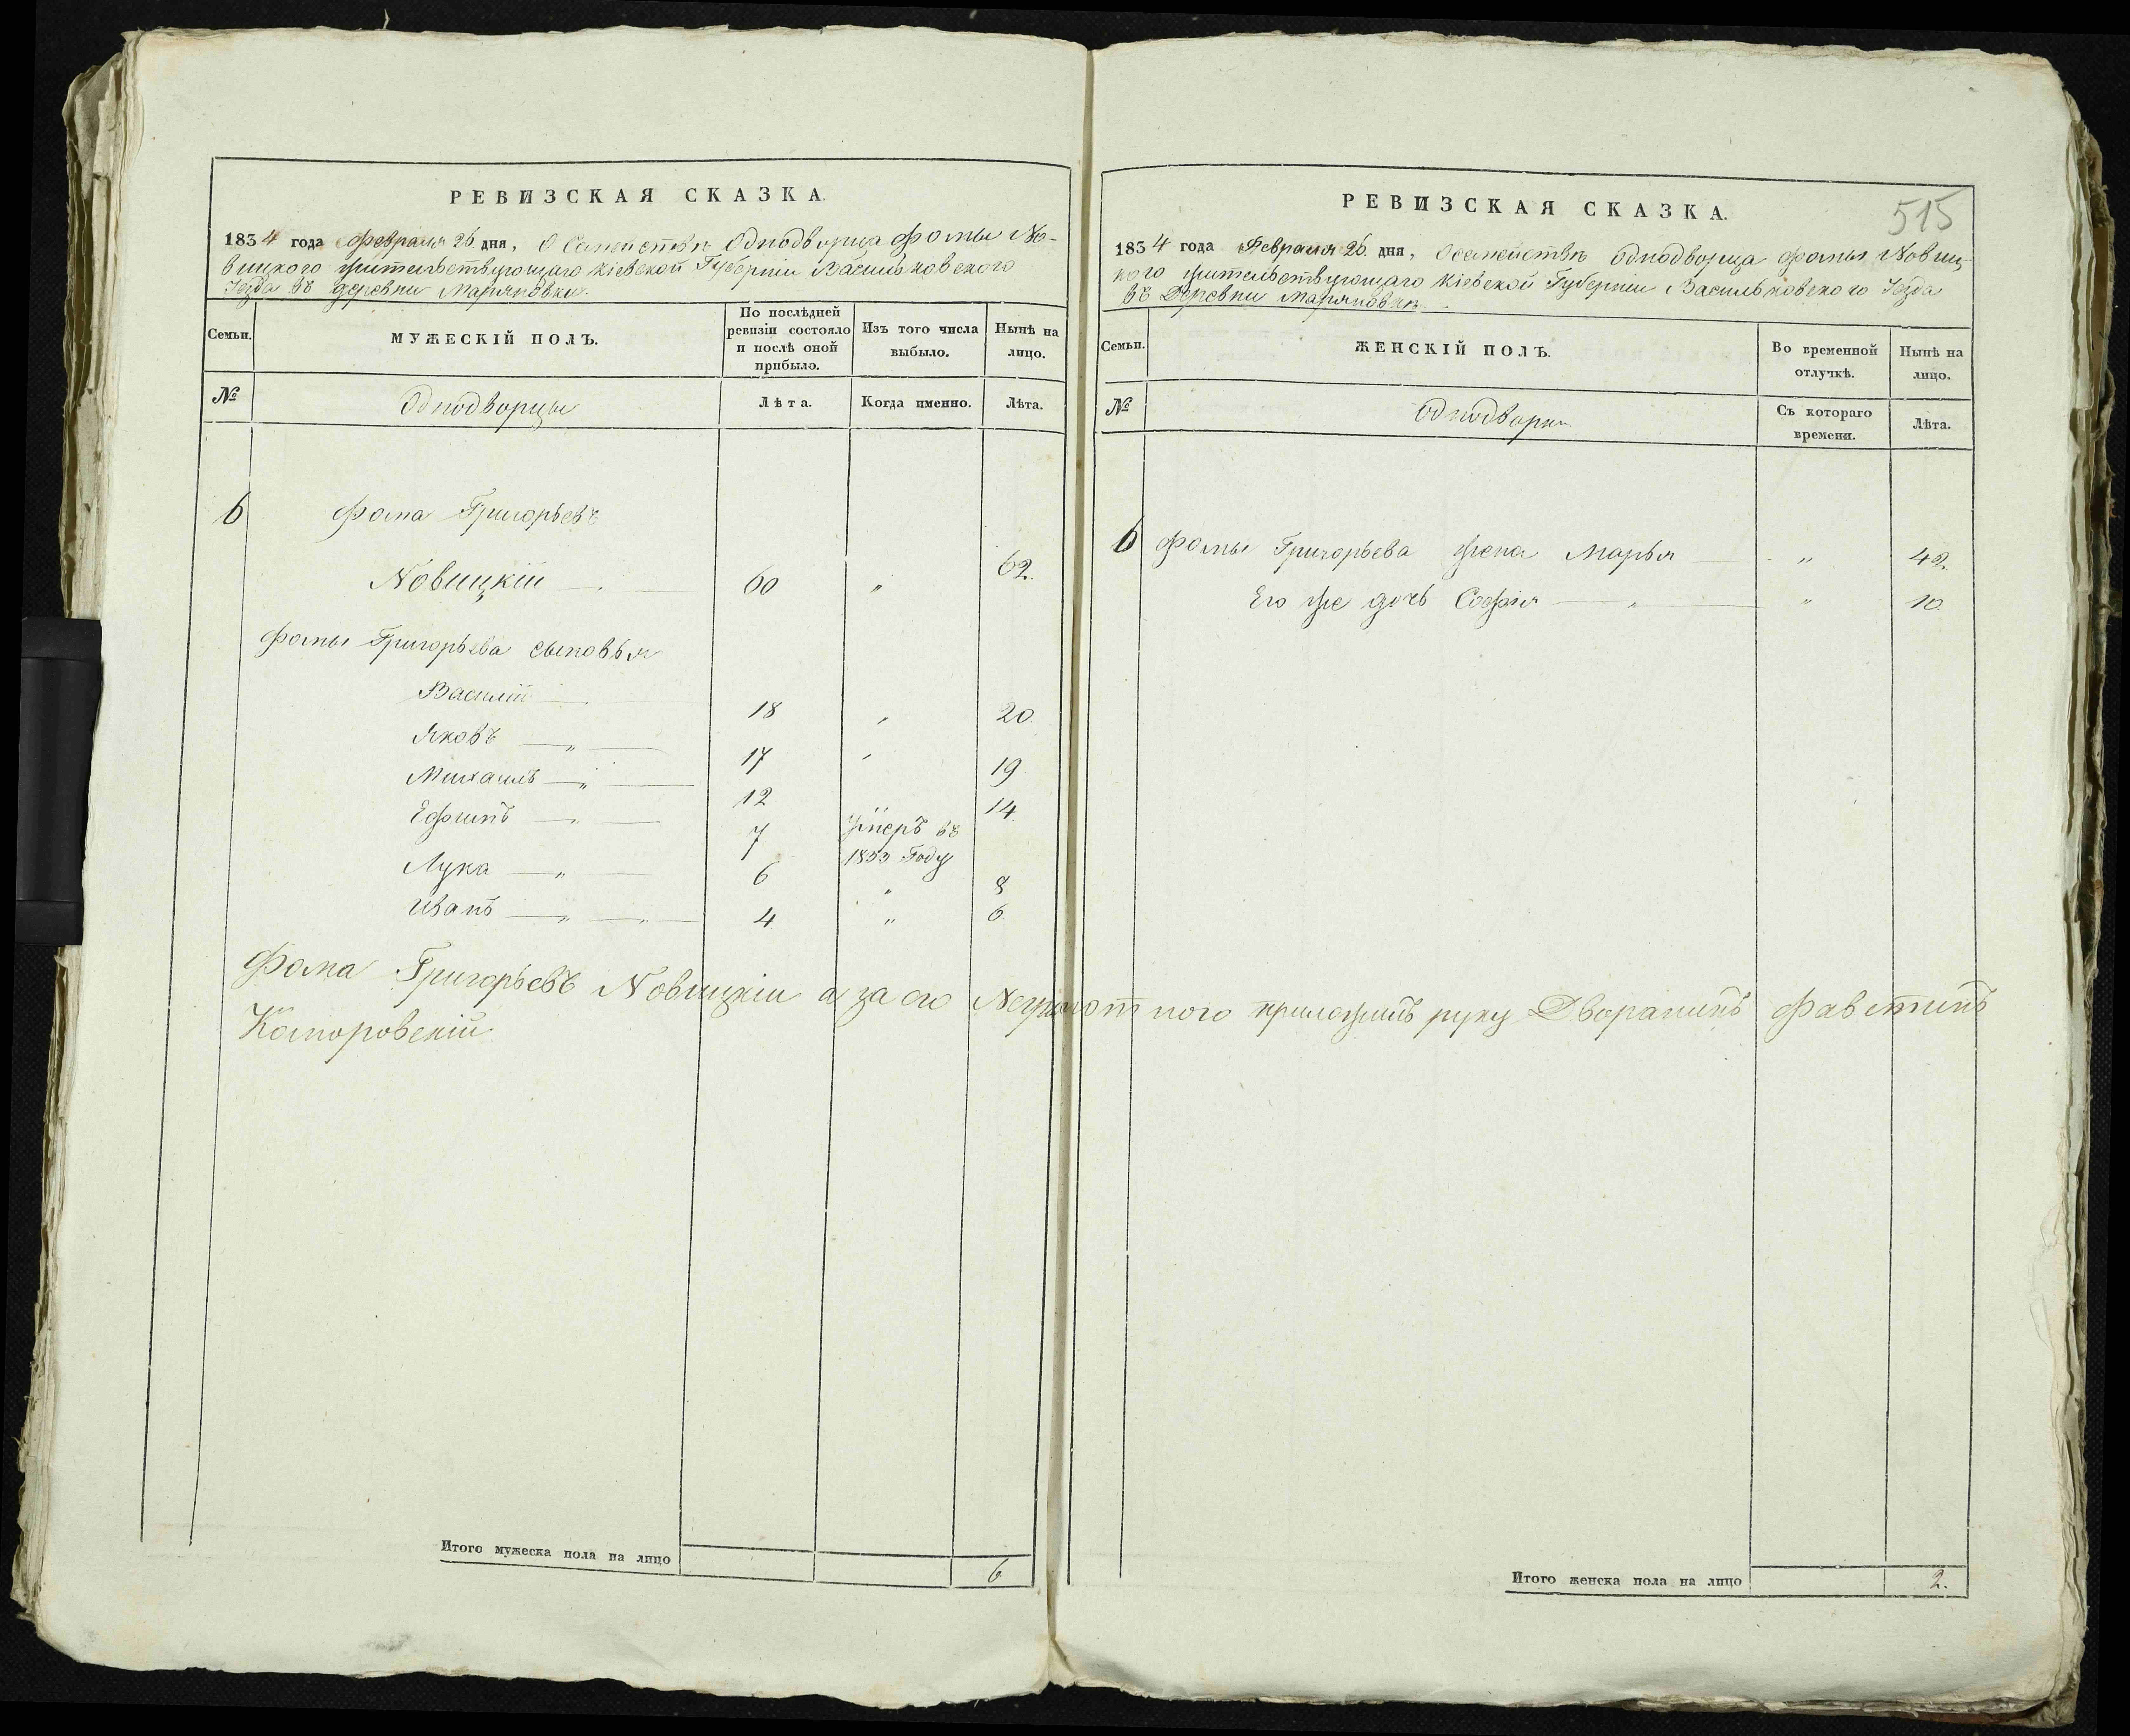 РЕВИЗСКАЯ СКАЗКА.
1834 года Февраля 26 дня, О Семействѣ Однодворца Фомы Но-
вицкого жительствующаго Кіевской Губерніи Васильковского
Уезда въ деревни Марьяновки.
Семьи.
МУЖЕСКІЙ ПОЛЪ.
По послѣдней
ревизіи состояло
и послѣ оной
прибыло.
Изъ того числа
выбыло.
Нынѣ на
лицо.
№
Однодворцы
Лѣта.
Когда именно.
Лѣта.
6 Фома Григорьевъ
Новицкій — 60 „ 62.
Фомы Григорьева сыновья
Василій — 18 „ 20.
Яковъ — „ — 17 „ 19
Михаилъ — „ — 12 14
Ефимъ — „ — 7 Умеръ въ
1833 Году
Лука — „ — 6 „ 8
Иванъ — „ — „ — 4 „ 6.
Фома Григорьевъ Новицкій а за его Неграмотного приложилъ руку Дворанинъ Фавстинъ
Коморовскій
Итого мужеска пола на лицо 6
515
РЕВИЗСКАЯ СКАЗКА.
1834 года Февраля 26 дня, О семействѣ Однодворца Фомы Новиц-
кого жительствующаго Кіевской Губерніи Васильковского Уезда
въ Деревни Марьяновки
Семьи.
ЖЕНСКІЙ ПОЛЪ.
Во временной
отлучкѣ.
Нынѣ на
лицо.
№
Однодворки
Съ котораго
времени.
Лѣта.
6 Фомы Григорьева жена Марья — „ 42.
Его же дочь Софія — „ — „ 10
Итого женска пола на лицо 2.